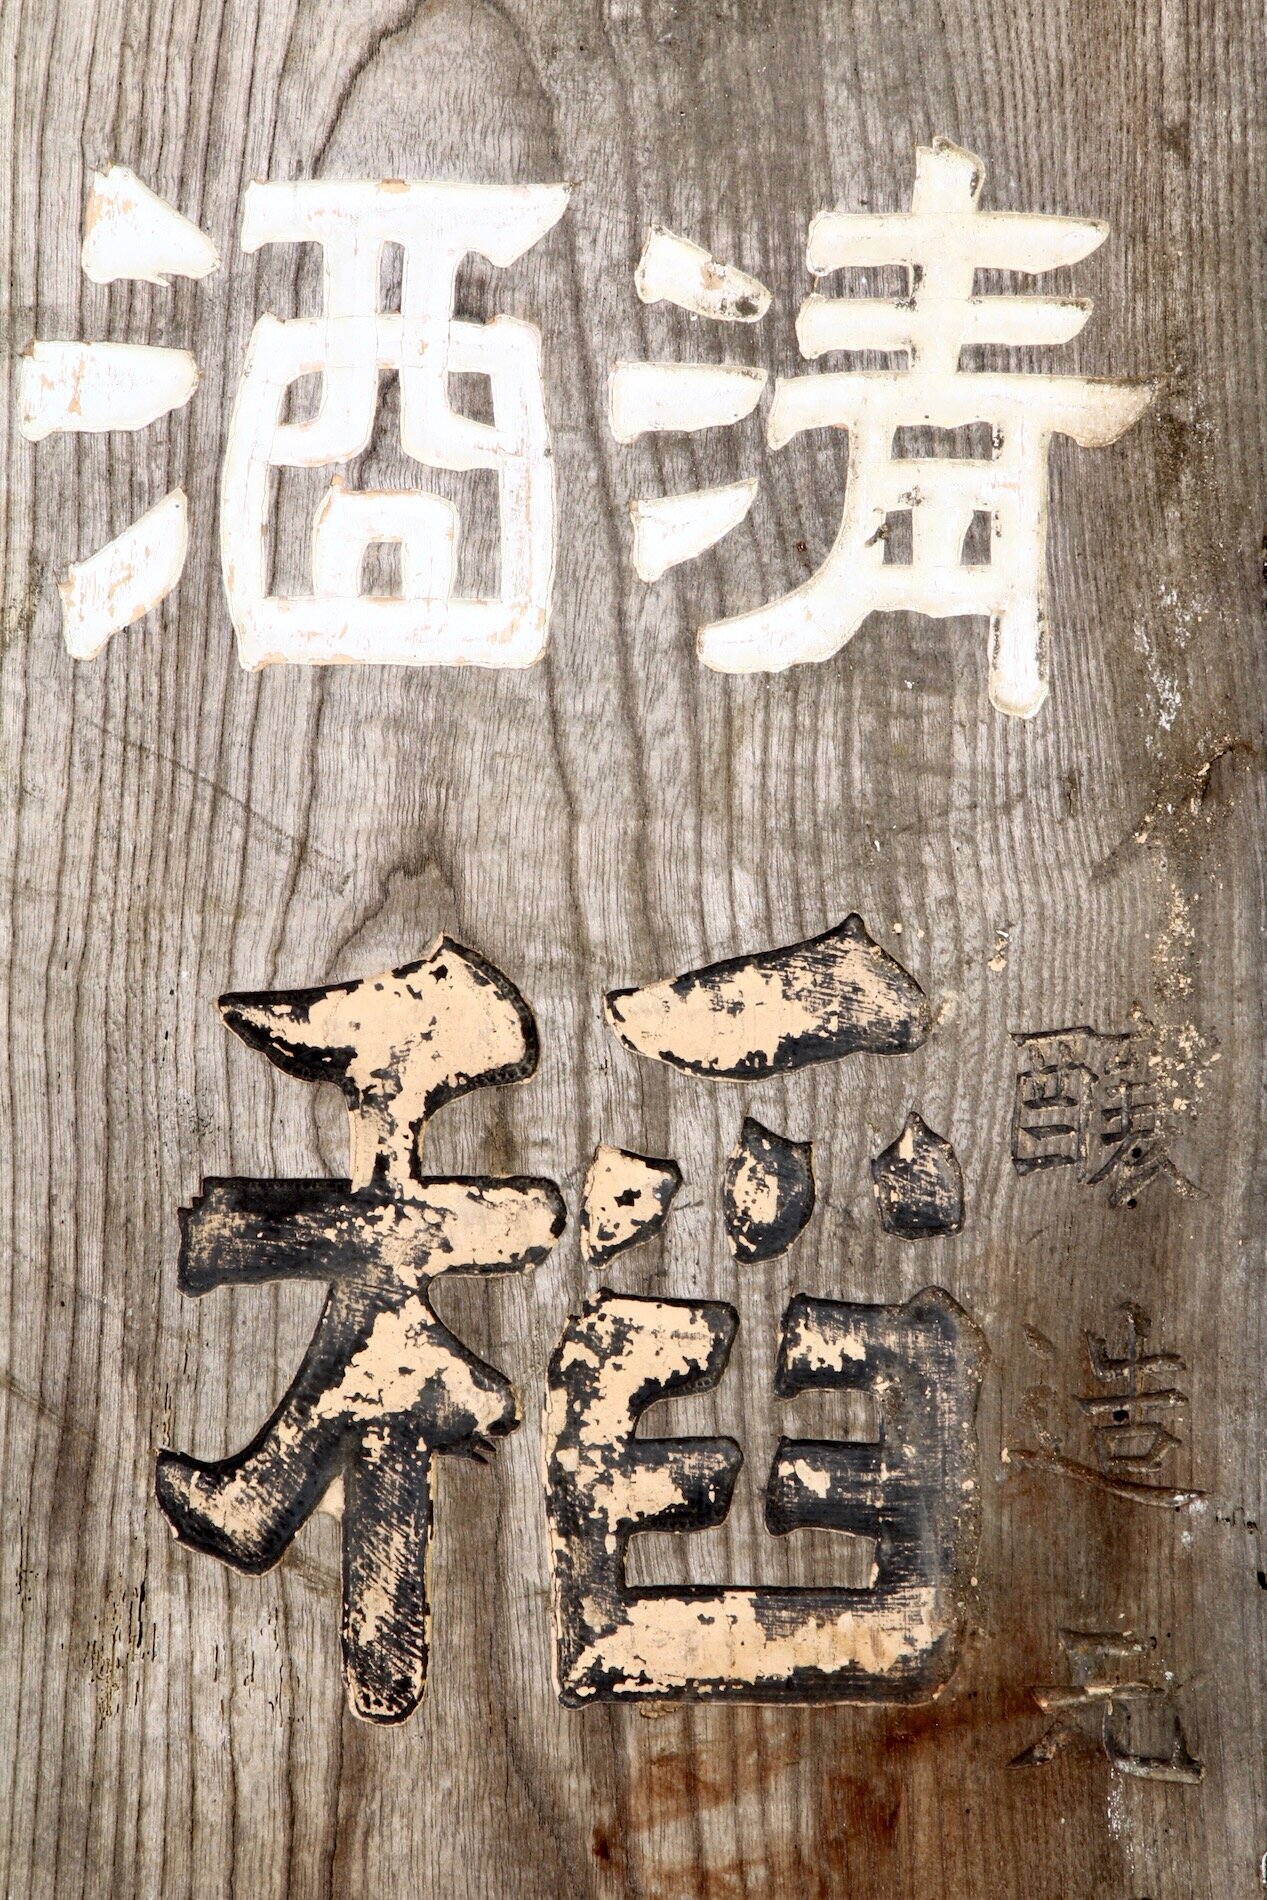 清酒
稲
醸造元